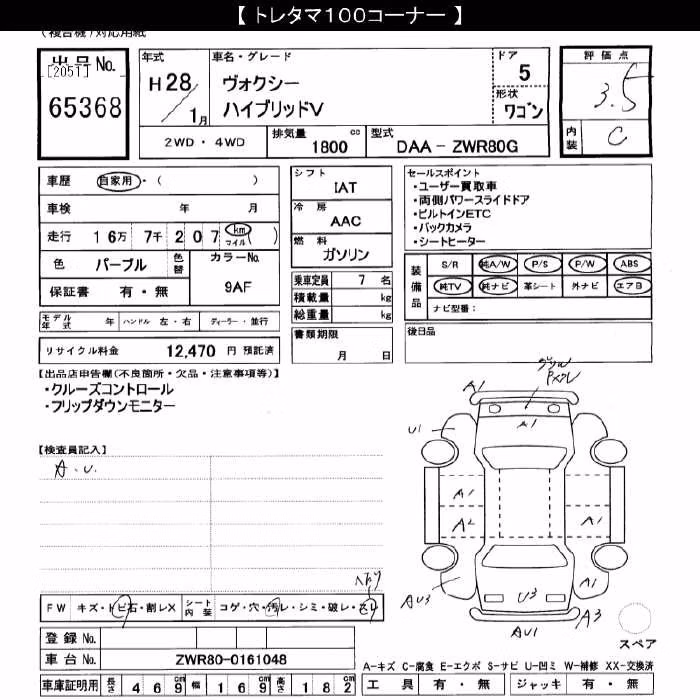 【 トレタマ100コーナー 】
(複合機)対応用紙
出品No.
[2051]
65368
年式
H28/1月
車名・グレード
ヴォクシー
ハイブリッドV
ドア 5
形状
ワゴン
評価点
3.5
内装 C
2WD ・ 4WD
排気量 1800 cc
型式 DAA - ZWR80G
車歴 自家用・( )
車検 年 月
走行 16万 7千 207 km マイル ( )
色 パープル 色替 カラーNo. 9AF
保証書 有 ・ 無
シフト IAT
冷房 AAC
燃料 ガソリン
乗車定員 7 名
積載量 kg
総重量 kg
書類期限
月 日
セールスポイント
・ユーザー買取車
・両側パワースライドドア
・ビルトインETC
・バックカメラ
・シートヒーター
装備品
S/R 純A/W P/S P/W ABS
純TV 純ナビ 革シート 外ナビ エアB
ナビ型番:
後日品
モデル年式 年 ハンドル 左・右 ディーラー・並行
リサイクル料金 12,470 円 預託済
【出品店申告欄(不良箇所・欠品・注意事項等)】
・クルーズコントロール
・フリップダウンモニター
【検査員記入】
A・U.
A1
A1
U1
A1
A2
A1
A1
AU3
U3
AU1
A3
FW キズ・トビ石・割レX
シート内装 コゲ・穴・汚レ・シミ・破レ・スレ
登録 No.
車台 No. ZWR80-0161048
スペア
A-キズ C-腐食 E-エクボ S-サビ U-凹ミ W-補修 XX-交換済
車庫証明用 長さ 469 幅 169 高さ 182
工具 有 ・ 無 ジャッキ 有 ・ 無